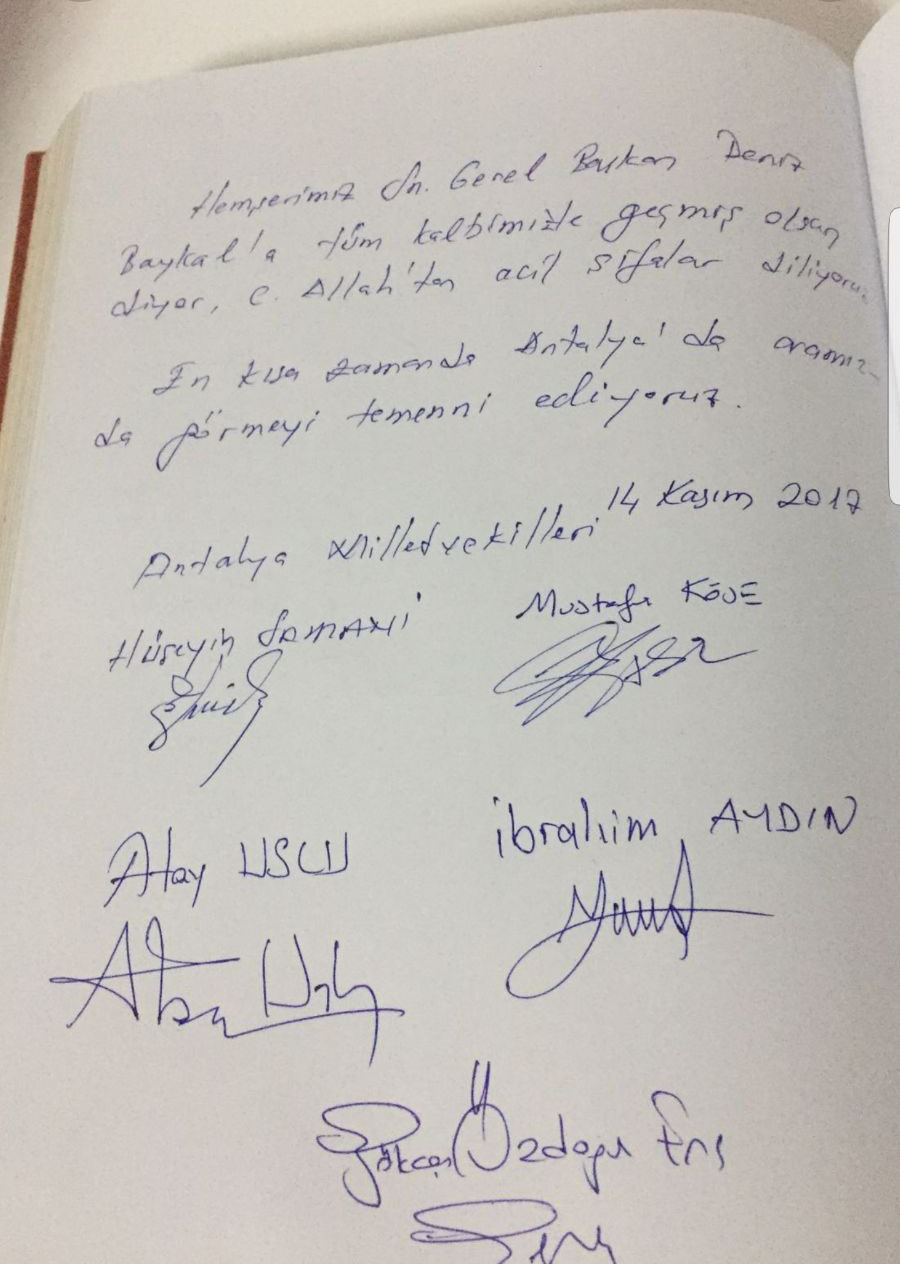 Hemşerimiz Sn. Genel Başkan Deniz
Baykal'a tüm kalbimizle geçmiş olsun
diyor, C. Allah'tan acil şifalar diliyoruz
En kısa zamanda Antalya'da aramız-
da görmeyi temenni ediyoruz.
14 Kasım 2017
Antalya Milletvekilleri
Hüseyin SAMANİ
Mustafa KÖSE
Atay USLU
İbrahim AYDIN
Gökcen Özdoğan Enç